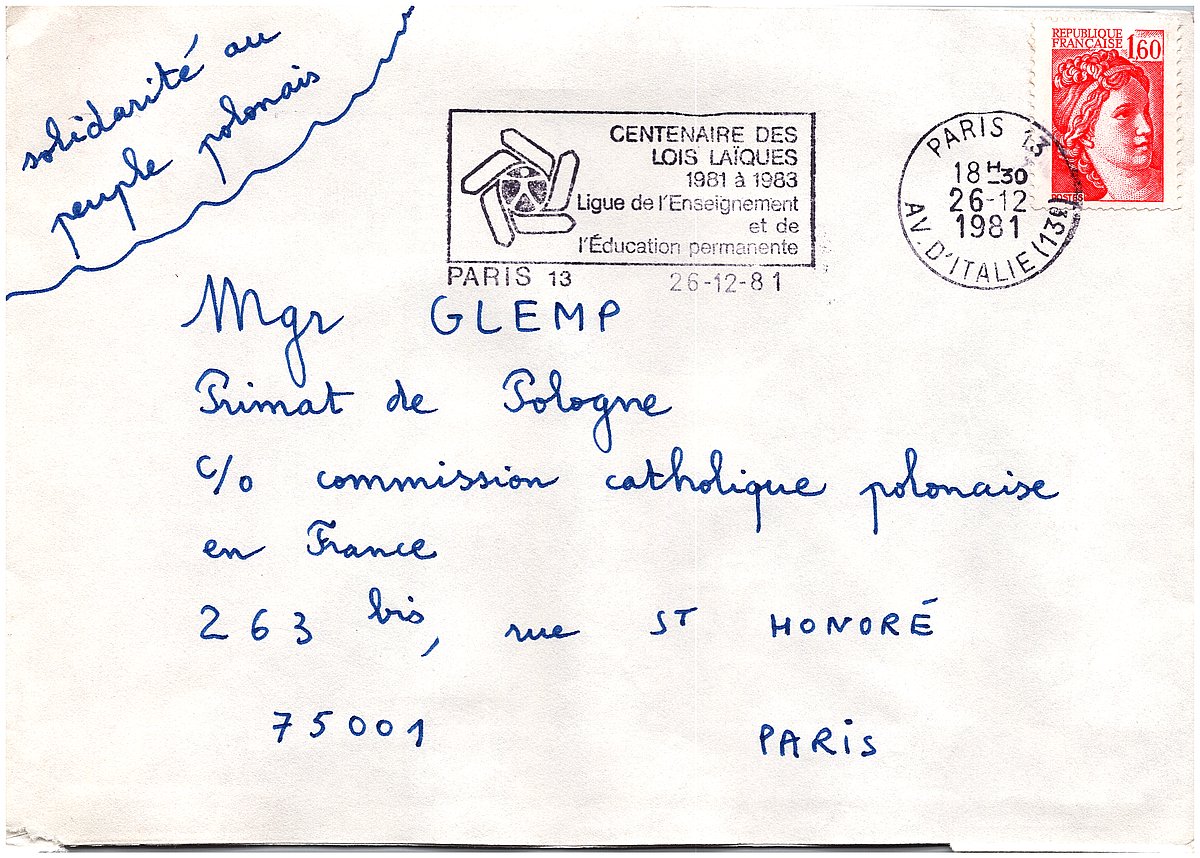 solidarité au
peuple polonais
CENTENAIRE DES
LOIS LAÏQUES
1981 à 1983
Ligue de l'Enseignement
et de
l'Éducation permanente
PARIS 13 26-12-81
PARIS 13
18H-30
26-12
1981
AV. D'ITALIE (13e)
REPUBLIQUE
FRANÇAISE 1,60
POSTES
Mgr GLEMP
Primat de Pologne
c/o commission catholique polonaise
en France
263 bis, rue ST HONORÉ
75001 PARIS